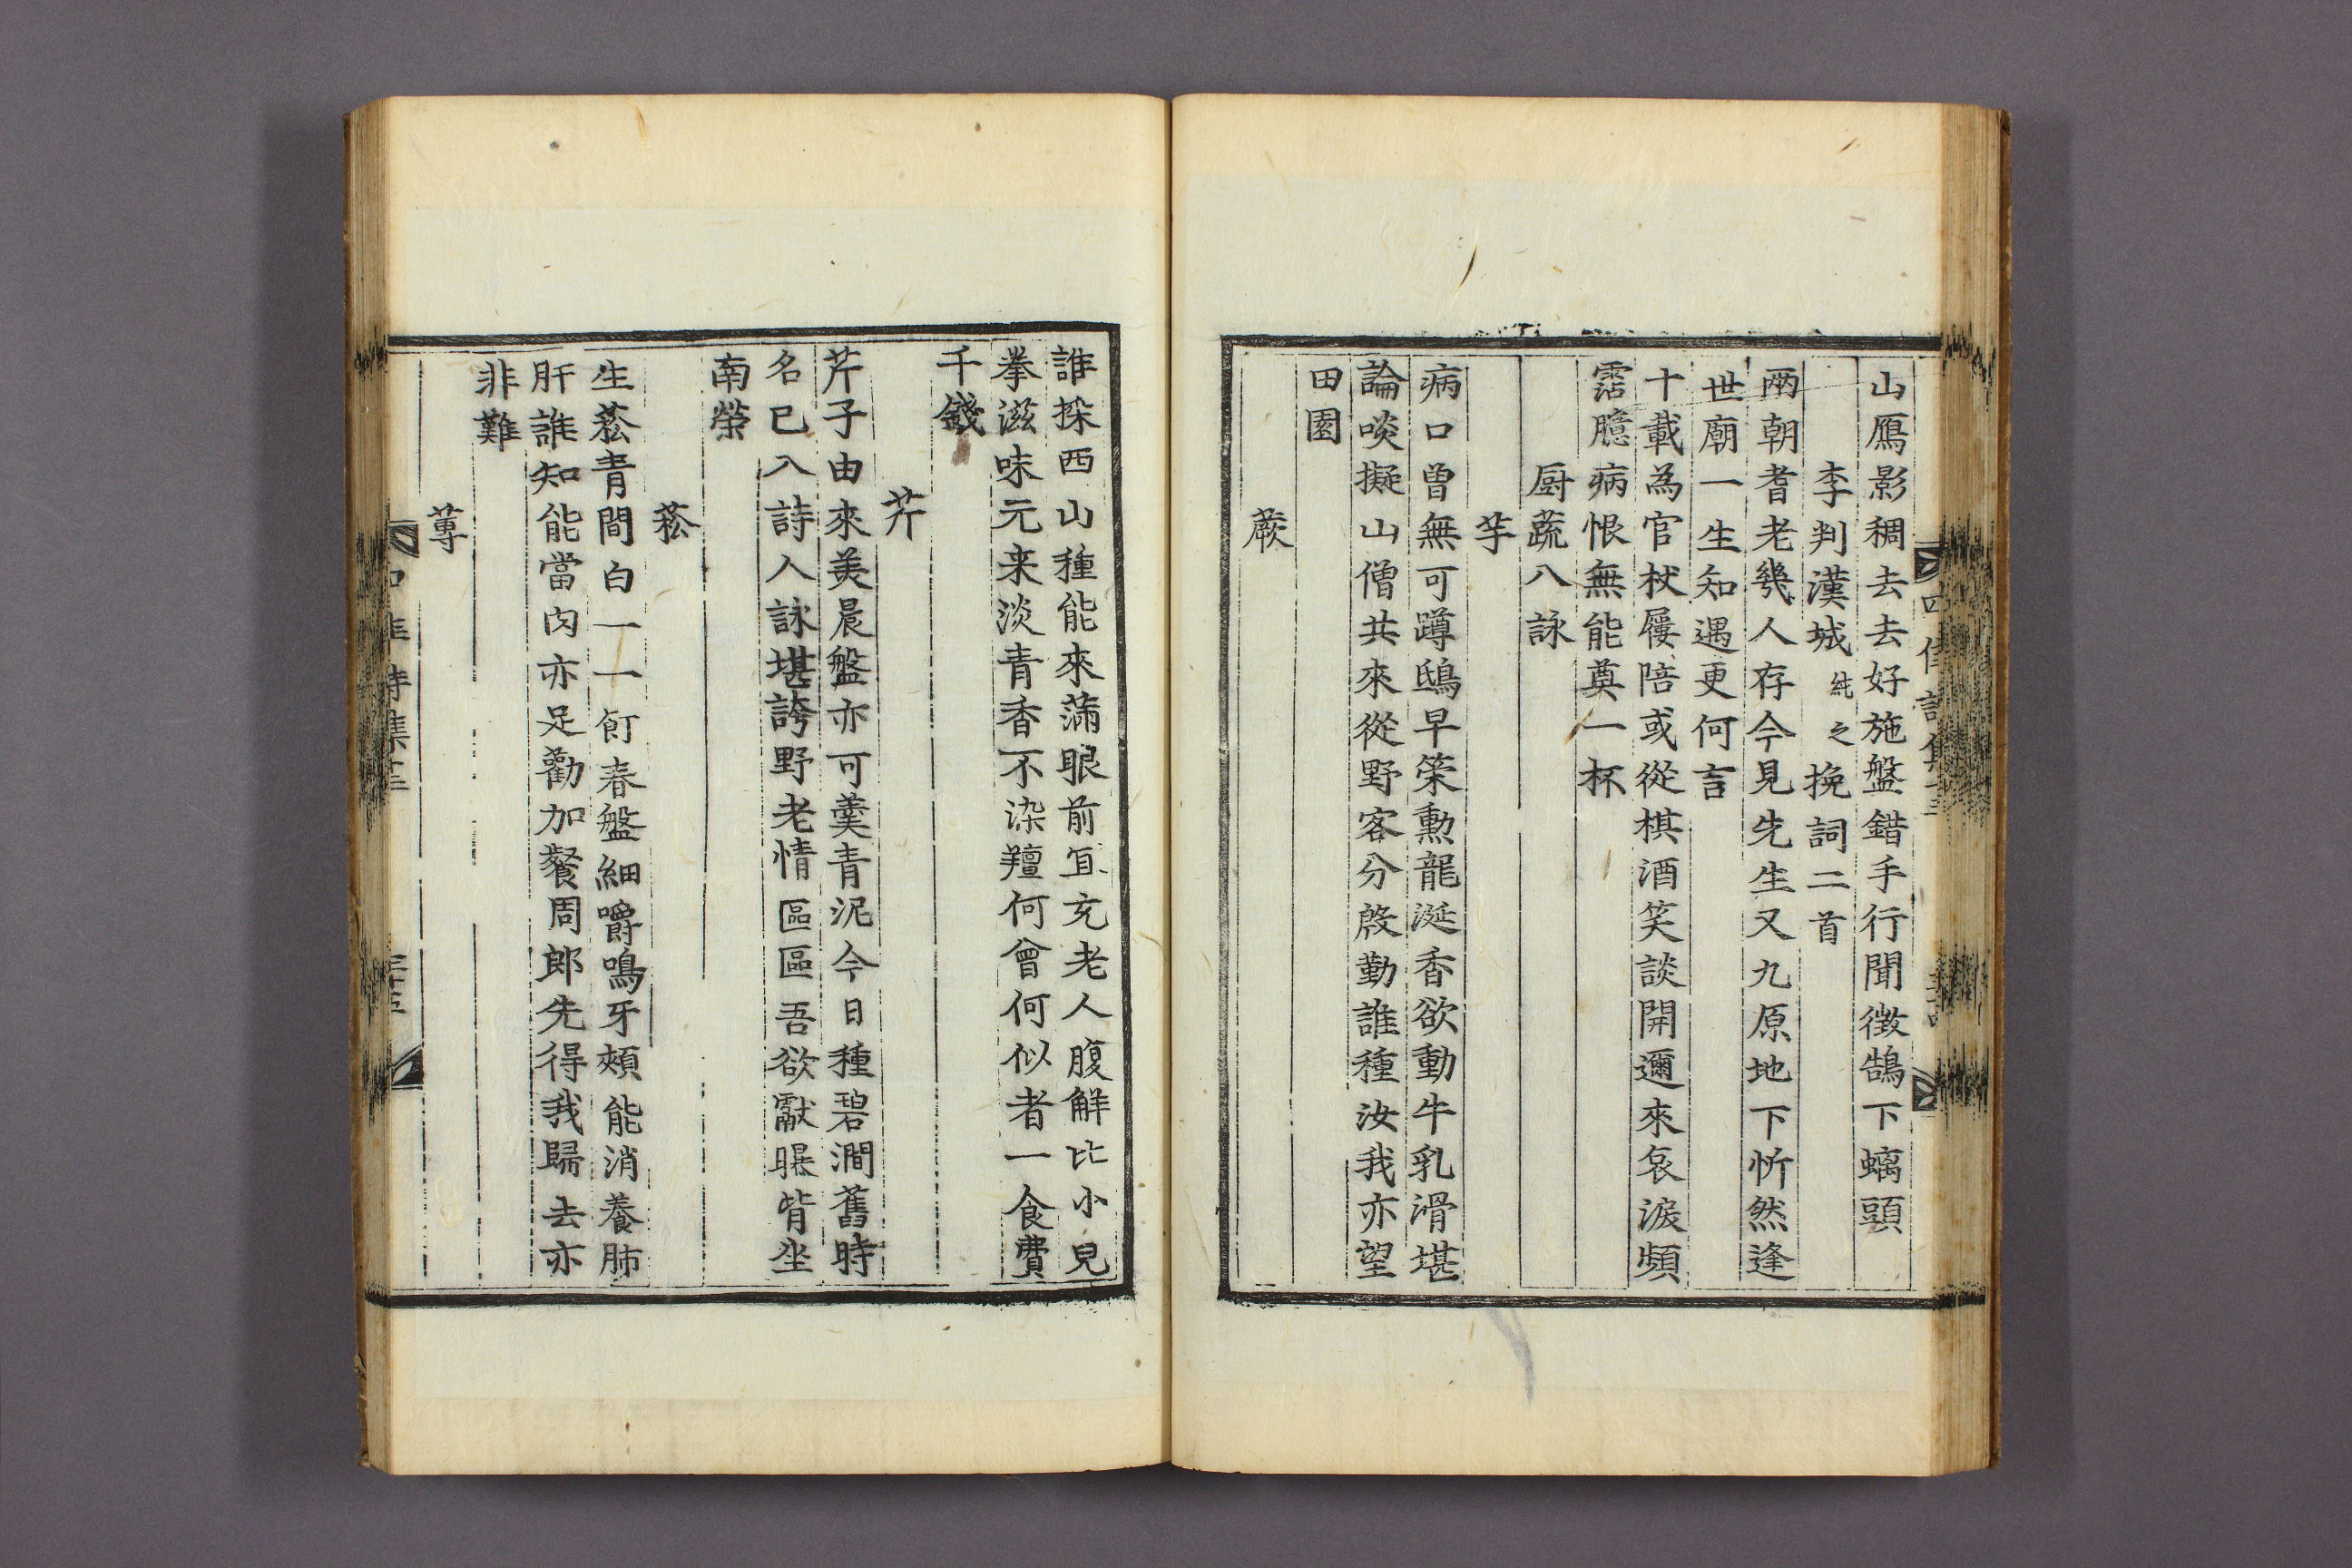 山鴈影稠去去好施盤錯手行聞徵鵠下螭頭
李判漢城純之挽詞二首
兩朝耆老幾人存今見先生又九原地下忻然逢
世廟一生知遇更何言
十載為官杖屨陪或從棋酒笑談開邇來哀淚頻
霑臆病恨無能奠一杯
厨蔬八詠
芋
病口曽無可蹲鴟早策勲龍涎香欲動牛乳滑堪
論啖擬山僧共來從野客分慇勤誰種汝我亦望
田園
蕨
誰採西山種能來滿眼前宜充老人腹鮮比小兒
拳滋味元来淡青香不染羶何曾何似者一食費
千錢
芹
芹子由來美晨盤亦可羹青泥今日種碧澗舊時
名已入詩人詠堪誇野老情區區吾欲獻曝背坐
南榮
菘
生菘青間白一一飣春盤細嚼鳴牙頰能消養肺
肝誰知能當肉亦足勸加餐周郎先得我歸去亦
非難
蓴